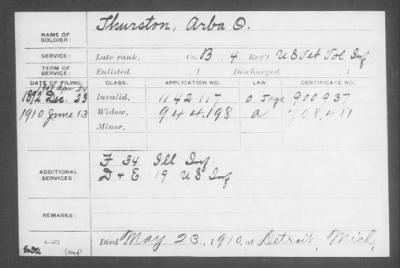 NAME OF SOLDIER: Thurston, Arba O.
SERVICE: Late rank, Co. B, 4 Reg't U S Vet Vol Inf
TERM OF SERVICE: Enlisted , 1 Discharged , 1
DATE OF FILING. CLASS. APPLICATION NO. LAW. CERTIFICATE NO.
1892 Dec. 23 Invalid, 1142117 900937
1910 June 13 Widow, 944,198 a 708,411
Minor,
ADDITIONAL SERVICES: F 34 Ill Inf
D + E 19 U S Inf
REMARKS:
Died May 23, 1910, at Detroit, Mich,